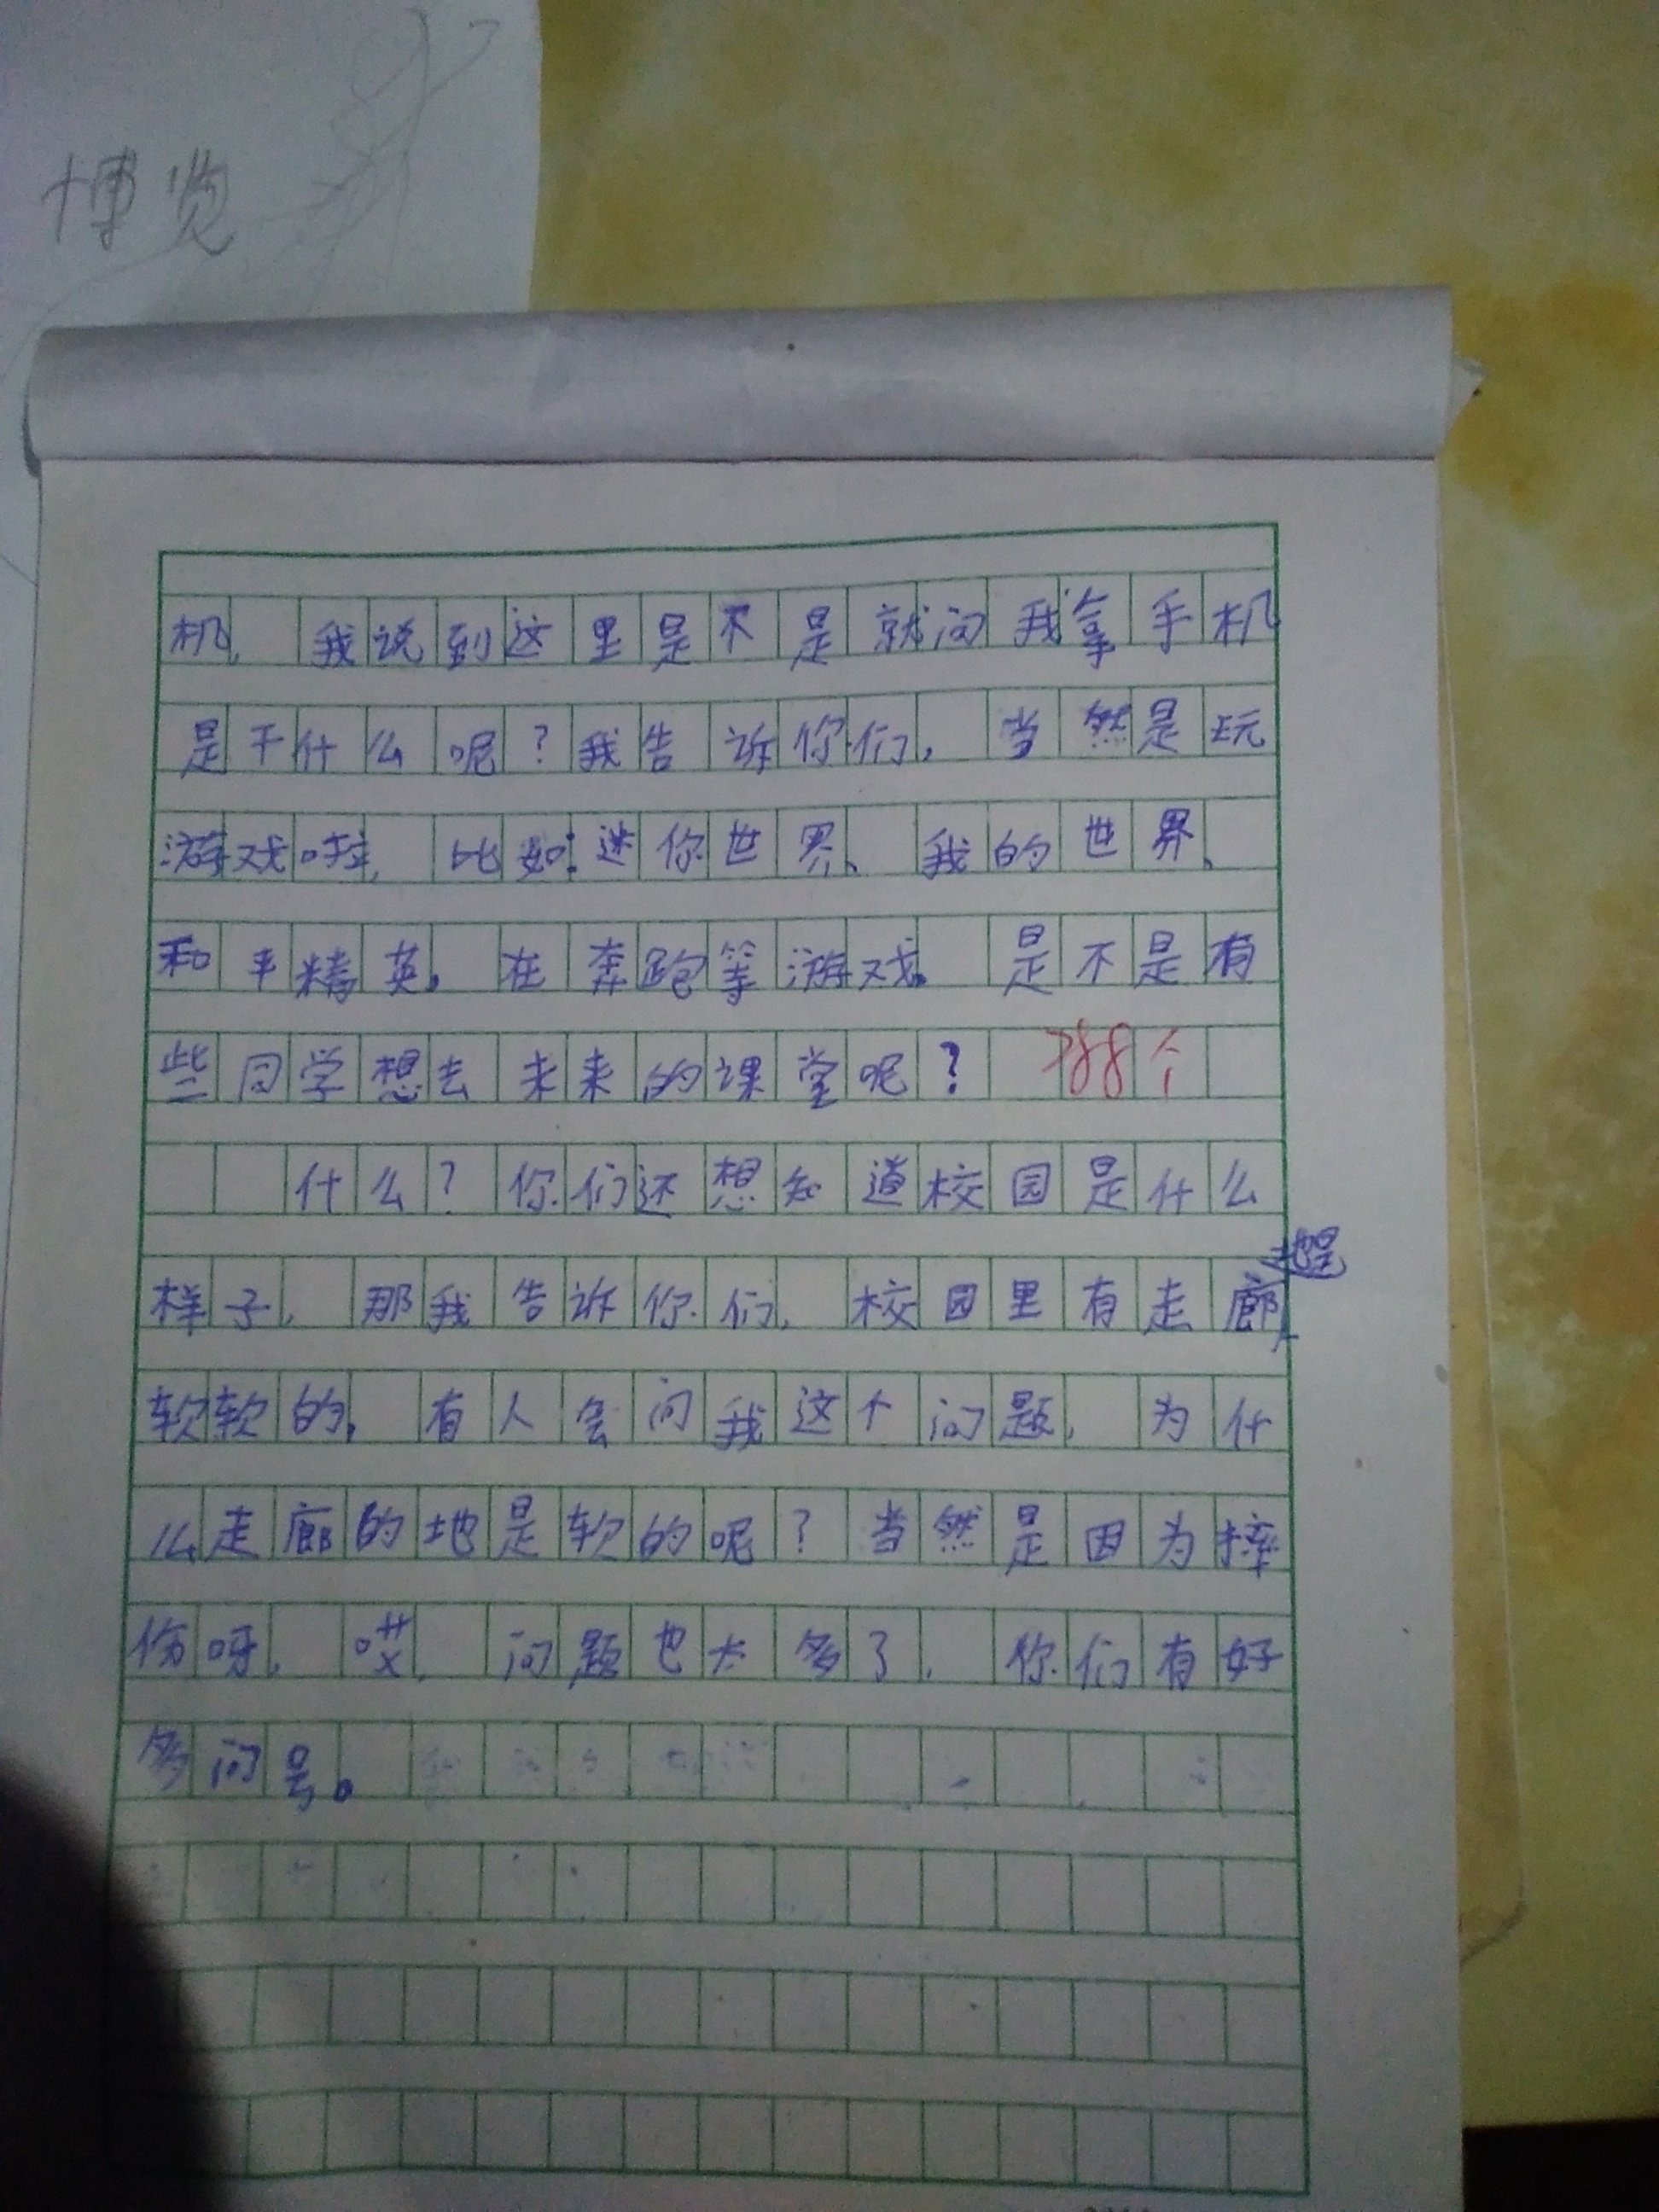 博览
机，我说到这里是不是就问我拿手机
是干什么呢？我告诉你们，当然是玩
游戏啦，比如：迷你世界、我的世界、
和平精英。在奔跑等游戏。是不是有
些同学想去未来的课堂呢？ 288个
什么？你们还想知道校园是什么
样子，那我告诉你们，校园里有走廊，地是
软软的，有人会问我这个问题，为什
么走廊的地是软的呢？当然是因为摔
伤呀，哎，问题也太多了，你们有好
多问号。